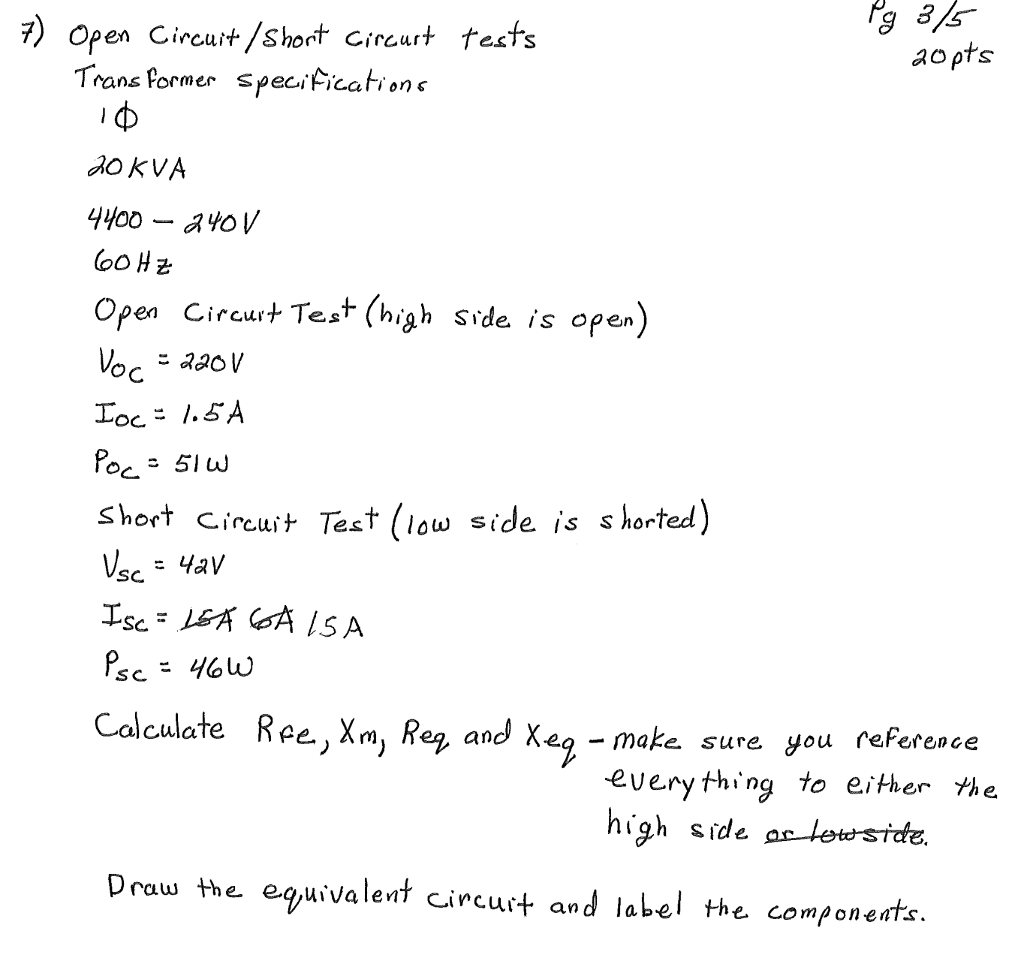 7) Open Circuit/Short Circuit tests
Pg 3/5
20pts
Transformer specifications
1Φ
20KVA
4400 – 240V
60Hz
Open Circuit Test (high side is open)
Voc = 220V
Ioc = 1.5A
Poc = 51W
Short Circuit Test (low side is shorted)
Vsc = 42V
Isc = 15A 6A 15A
Psc = 46W
Calculate Rfe, Xm, Req and Xeq – make sure you reference
everything to either the
high side or low side.
Draw the equivalent circuit and label the components.